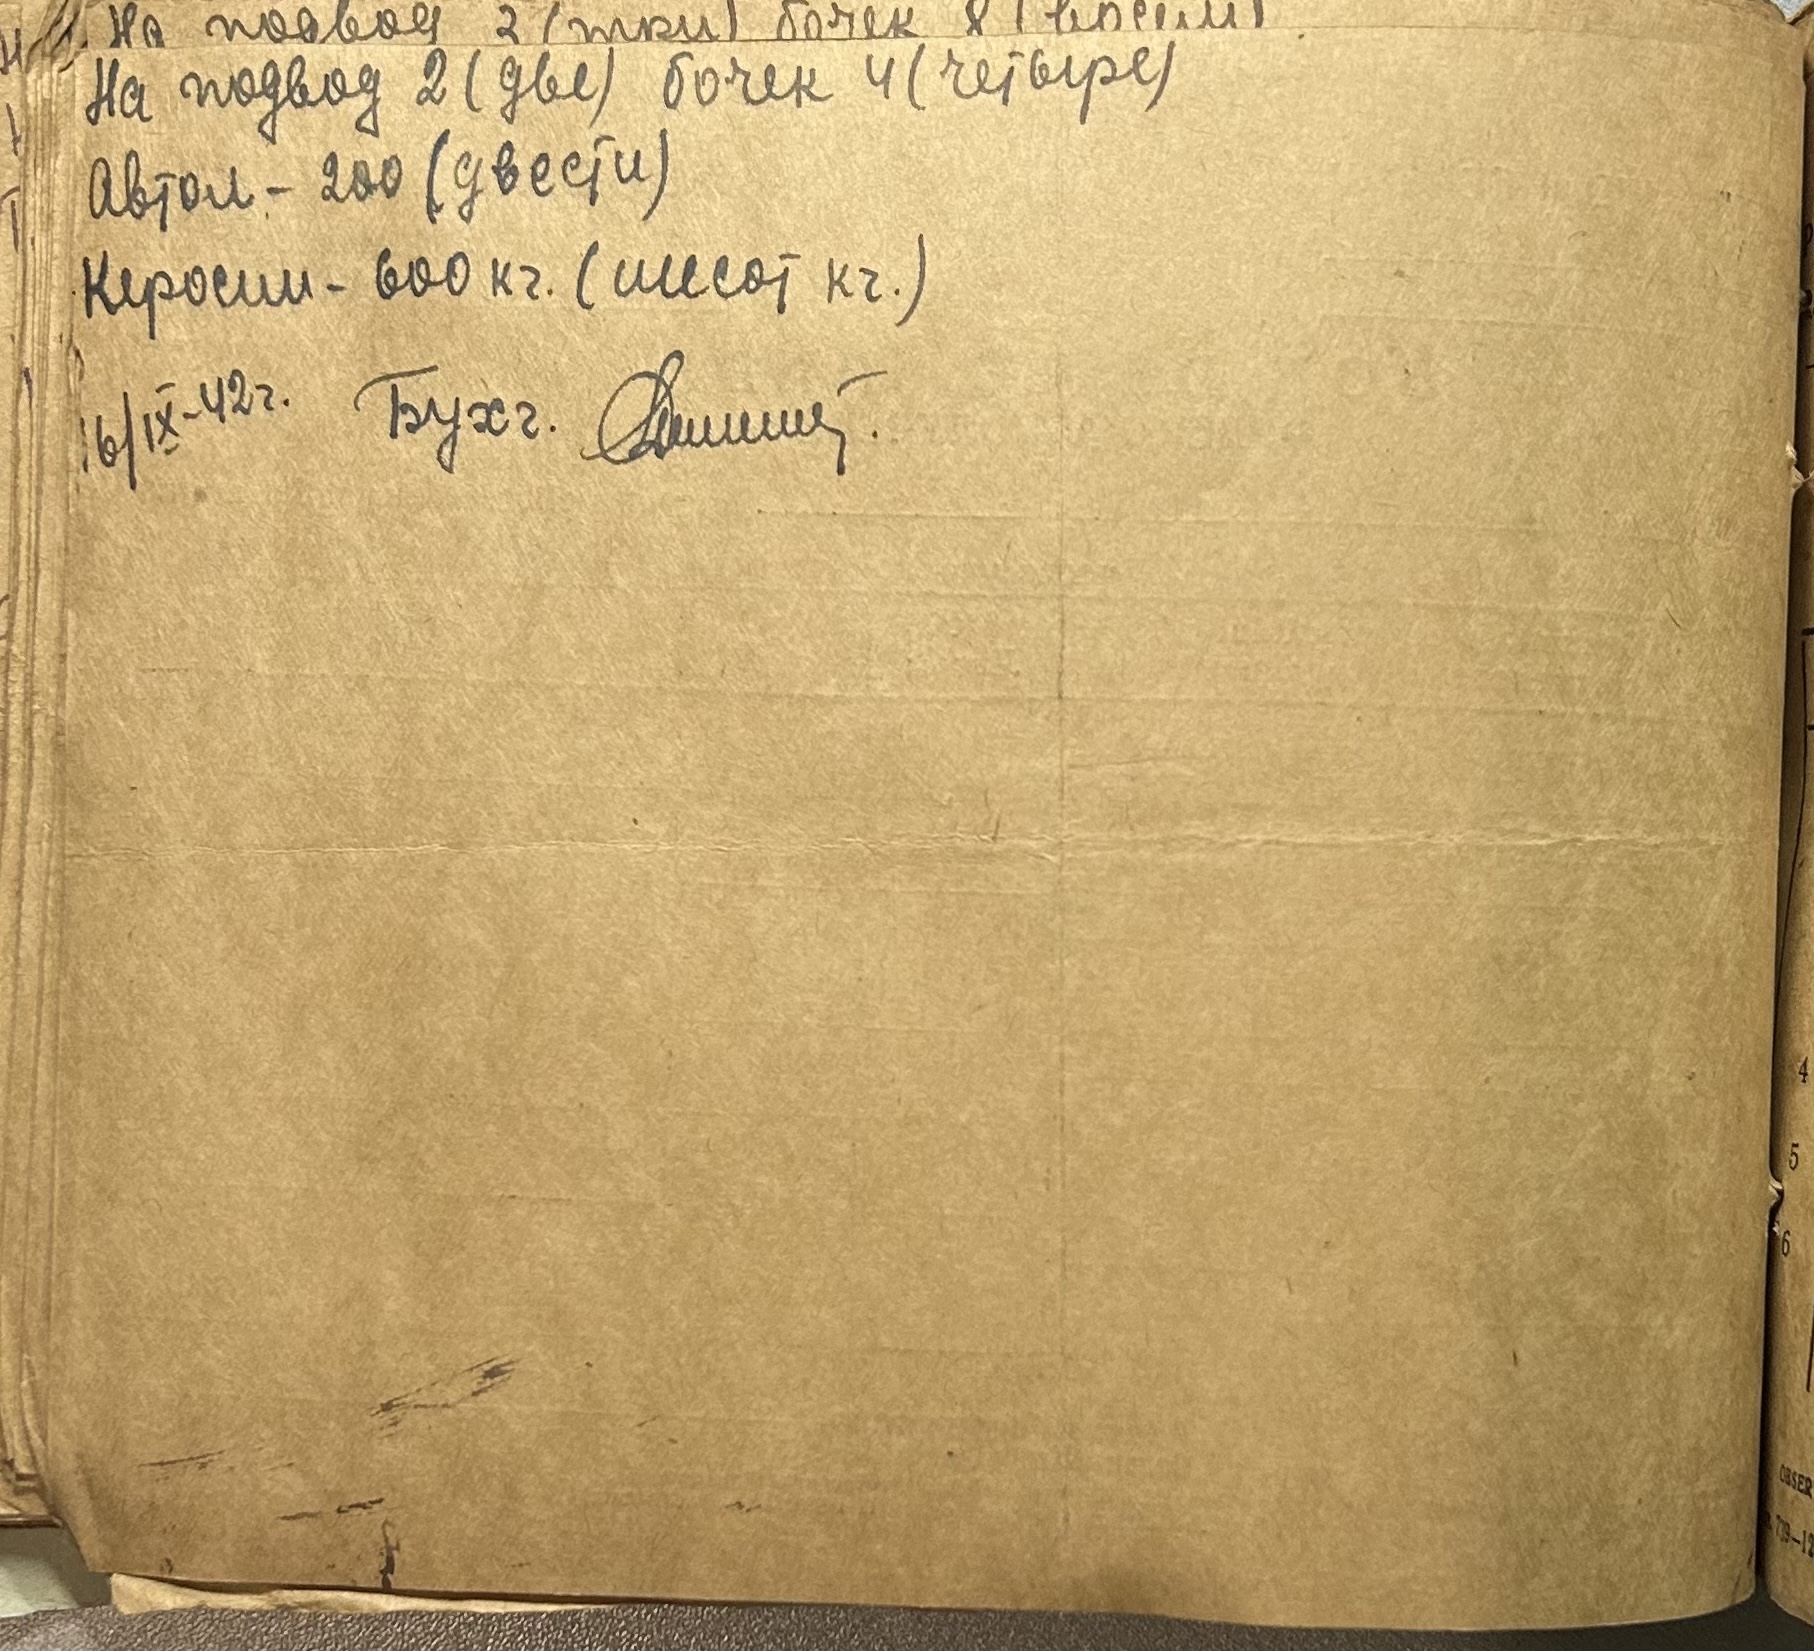 На подвод 3 (три) бочек 8 (восем)
На подвод 2 (две) бочек 4 (четыре)
Автол - 200 (двести)
Керосин - 600 кг. (шесот кг.)
16/IX-42 г. Бухг.
4
5
6
OBSER